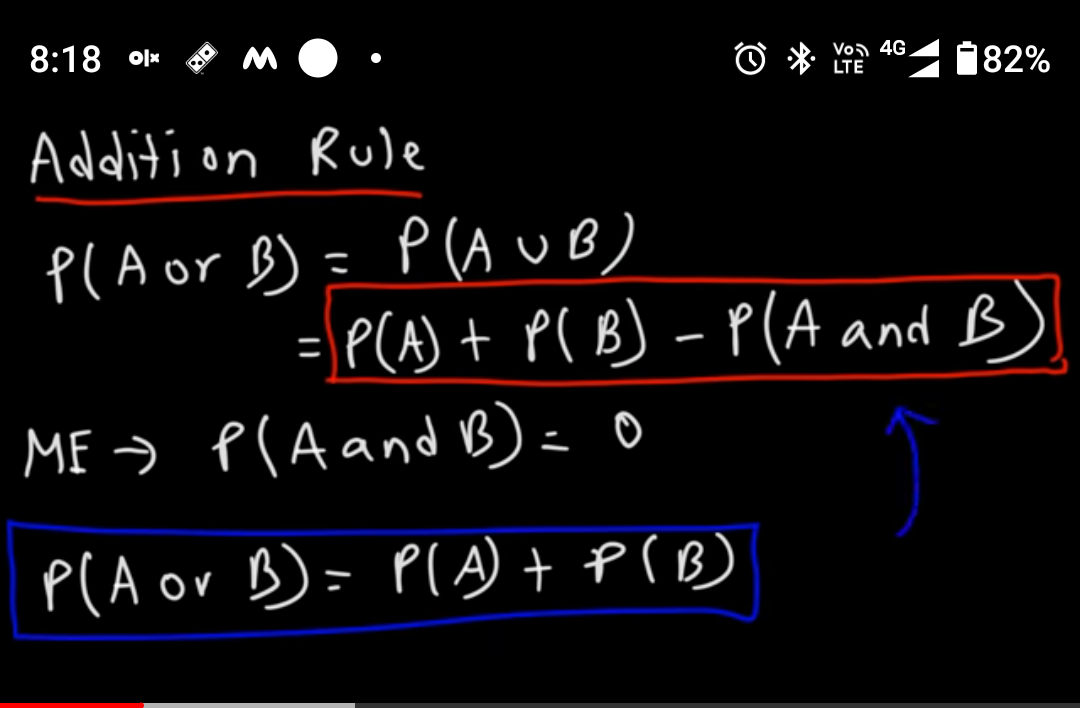 8:18 olx 4G Vo LTE 82%
Addition Rule
P(A or B) = P(A ∪ B)
= P(A) + P(B) - P(A and B)
ME → P(A and B) = 0
P(A or B) = P(A) + P(B)